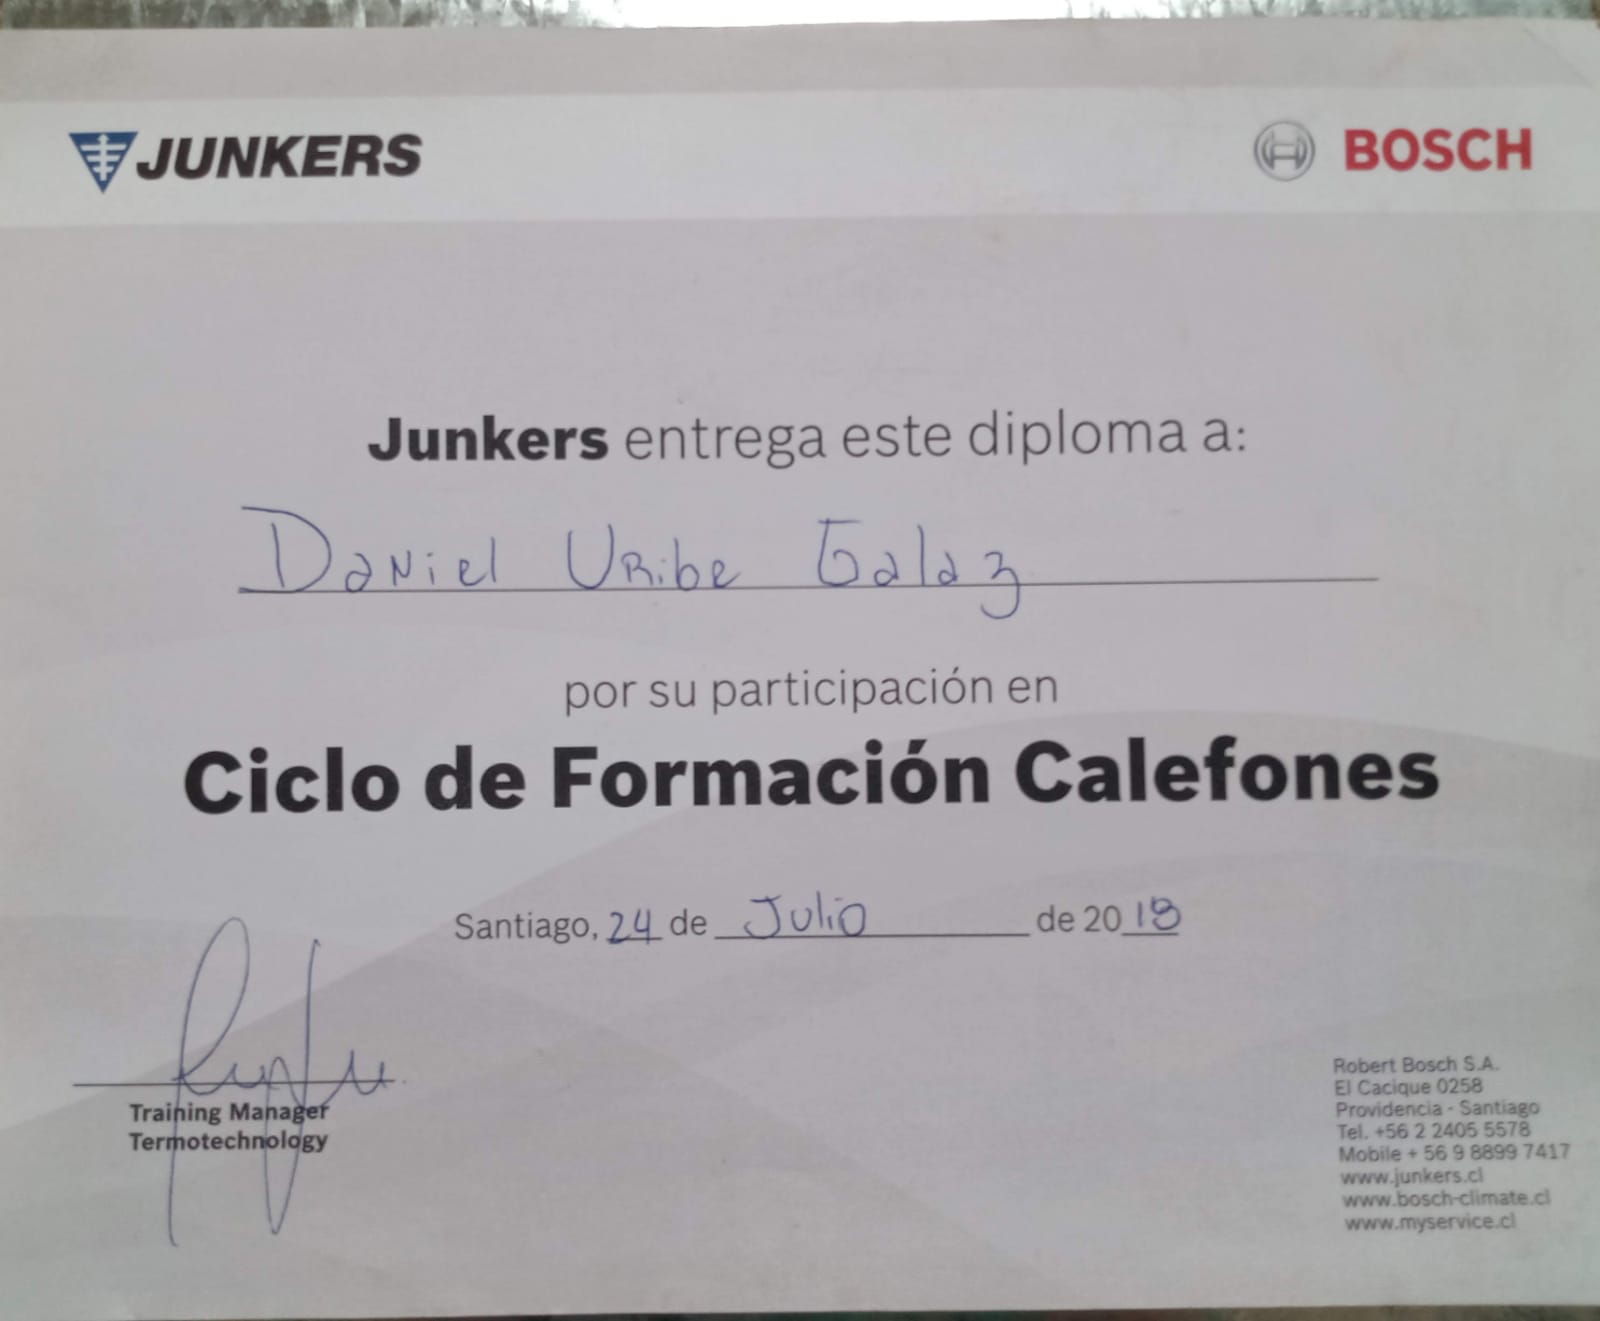 JUNKERS
BOSCH
Junkers entrega este diploma a:
Daniel Uribe Galaz
por su participación en
Ciclo de Formación Calefones
Santiago, 24 de Julio de 2018
Training Manager
Termotechnology
Robert Bosch S.A.
El Cacique 0258
Providencia - Santiago
Tel. +56 2 2405 5578
Mobile + 56 9 8899 7417
www.junkers.cl
www.bosch-climate.cl
www.myservice.cl